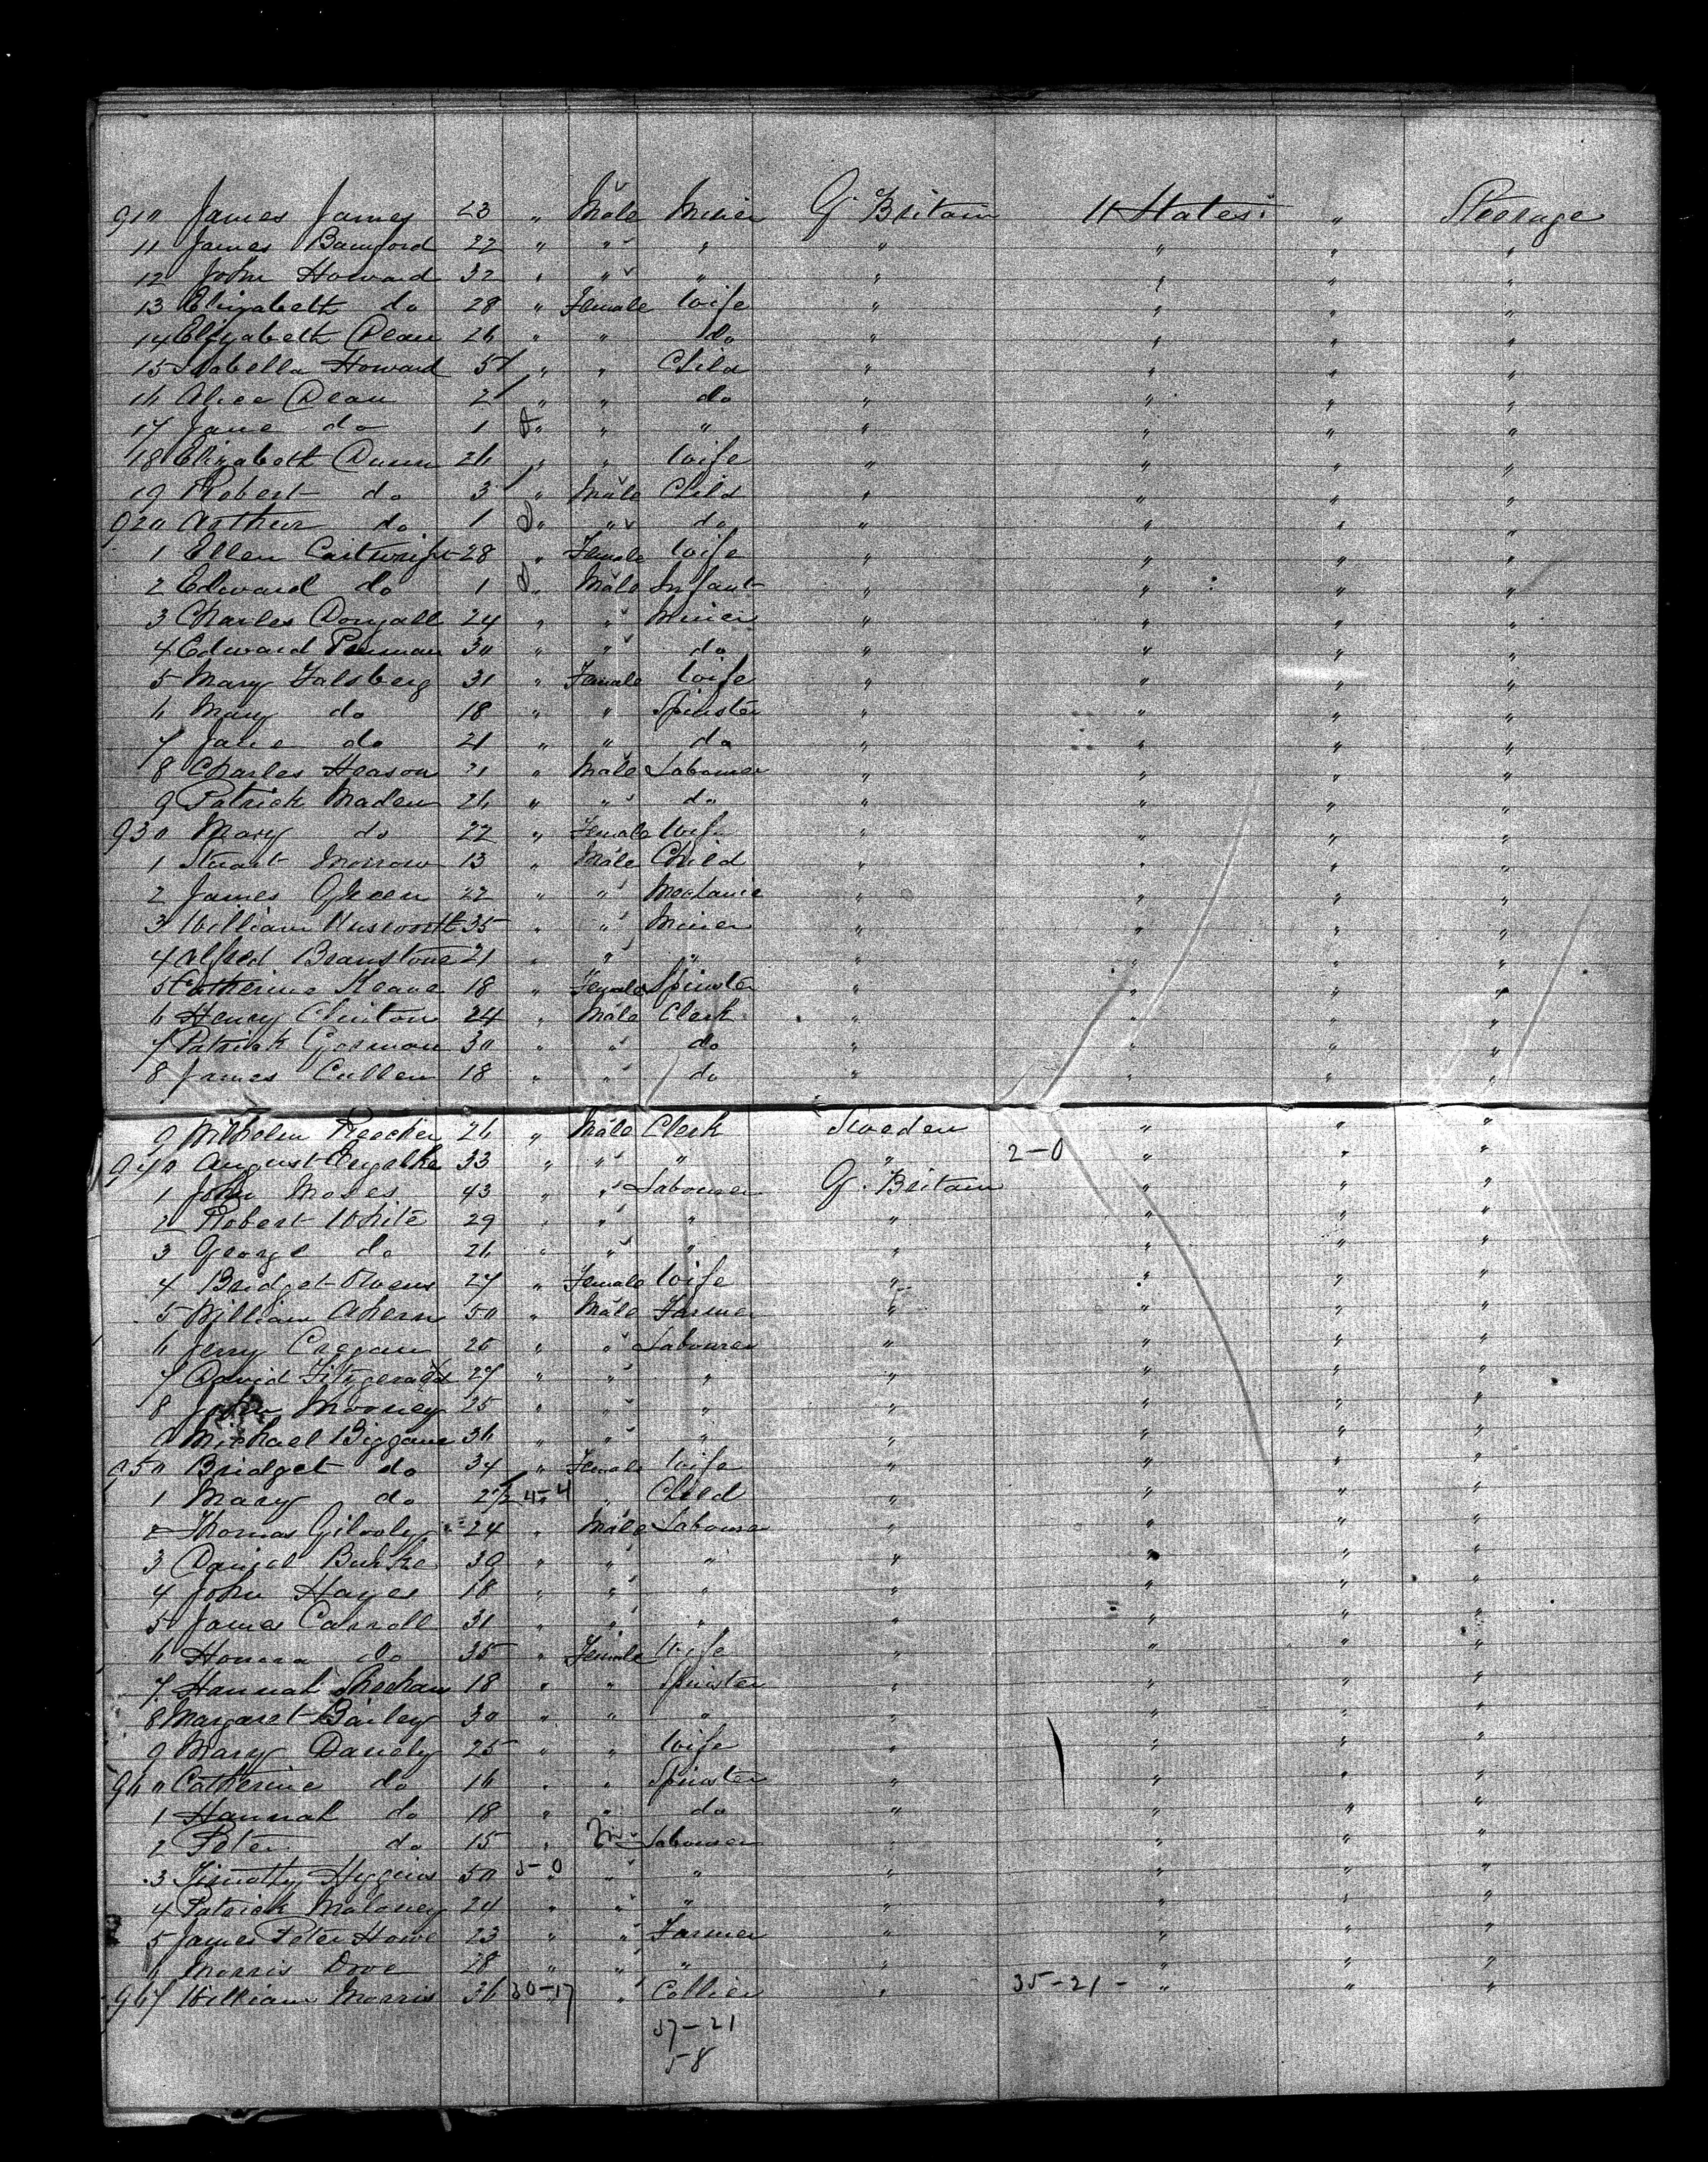 910 James James 23 " Male Miner G. Britain U States " Steerage
11 James Bamford 22 " " " " " " "
12 John Howard 32 " " " " " " "
13 Elizabeth do 28 " Female Wife " " " "
14 Elizabeth Dean 26 " " do " " " "
15 Isabella Howard 5 " " Child " " " "
16 Alice Dean 2 " " do " " " "
17 Jane do 1 " " " " " " "
18 Elizabeth Dunn 26 " " Wife " " " "
19 Robert do 3 " Male Child " " " "
920 Arthur do 1 " " do " " " "
1 Ellen Cartwright 28 " Female Wife " " " "
2 Edward do 1 " Male Infant " " " "
3 Charles Dougall 24 " " Miner " " " "
4 Edward Penman 30 " " do " " " "
5 Mary Falsberg 31 " Female Wife " " " "
6 Mary do 18 " " Spinster " " " "
7 Jane do 21 " " do " " " "
8 Charles Heason 31 " Male Labourer " " " "
9 Patrick Maden 26 " " do " " " "
930 Mary do 22 " Female Wife " " " "
1 Stuart Morrow 13 " Male Child " " " "
2 James Green 22 " " Mechanic " " " "
3 William Unsworth 35 " " Miner " " " "
4 Alfred Branstone 21 " " " " " " "
5 Catherine Keane 18 " Female Spinster " " " "
6 Henry Clinton 24 " Male Clerk " " " "
7 Patrick Gorman 30 " " do " " " "
8 James Cullen 18 " " do " " " "
9 Wilhelm Reecher 26 " Male Clerk Sweden " " "
940 August 33 " " " " 2-0 " " "
1 John Moses 43 " " Labourer G. Britain " " "
2 Robert White 29 " " " " " " "
3 George do 26 " " " " " " "
4 Bridget Owens 27 " Female Wife " " " "
5 William Ahern 50 " Male Farmer " " " "
6 Jerry Cregan 25 " " Labourer " " " "
7 David Fitzgerald 27 " " " " " " "
8 John Mooney 25 " " " " " " "
9 Michael Biggane 36 " " " " " " "
950 Bridget do 34 " Female Wife " " " "
1 Mary do 2 1/2 4-4 " Child " " " "
2 Thomas Gilooly 24 " Male Labourer " " " "
3 Daniel Burke 30 " " " " " " "
4 John Hayes 18 " " " " " " "
5 James Carroll 31 " " " " " " "
6 Honora do 35 " Female Wife " " " "
7 Hannah Sheehan 18 " " Spinster " " " "
8 Margaret Bailey 30 " " " " " " "
9 Mary Dandy 25 " " Wife " " " "
960 Catherine do 16 " " Spinster " " " "
1 Hannah do 18 " " do " " " "
2 Peter do 15 " M Labourer " " " "
3 Timothy Higgins 50 5-0 " " " " " "
4 Patrick Maloney 24 " " " " " " "
5 James Peter Howe 23 " " Farmer " " " "
6 Morris Dove 28 " " " " " " "
967 William Morris 36 30-17 " Collier " 35-21- " " "
37-21
58